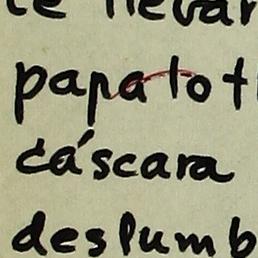 te llevar
papalot
cáscara
deslumb